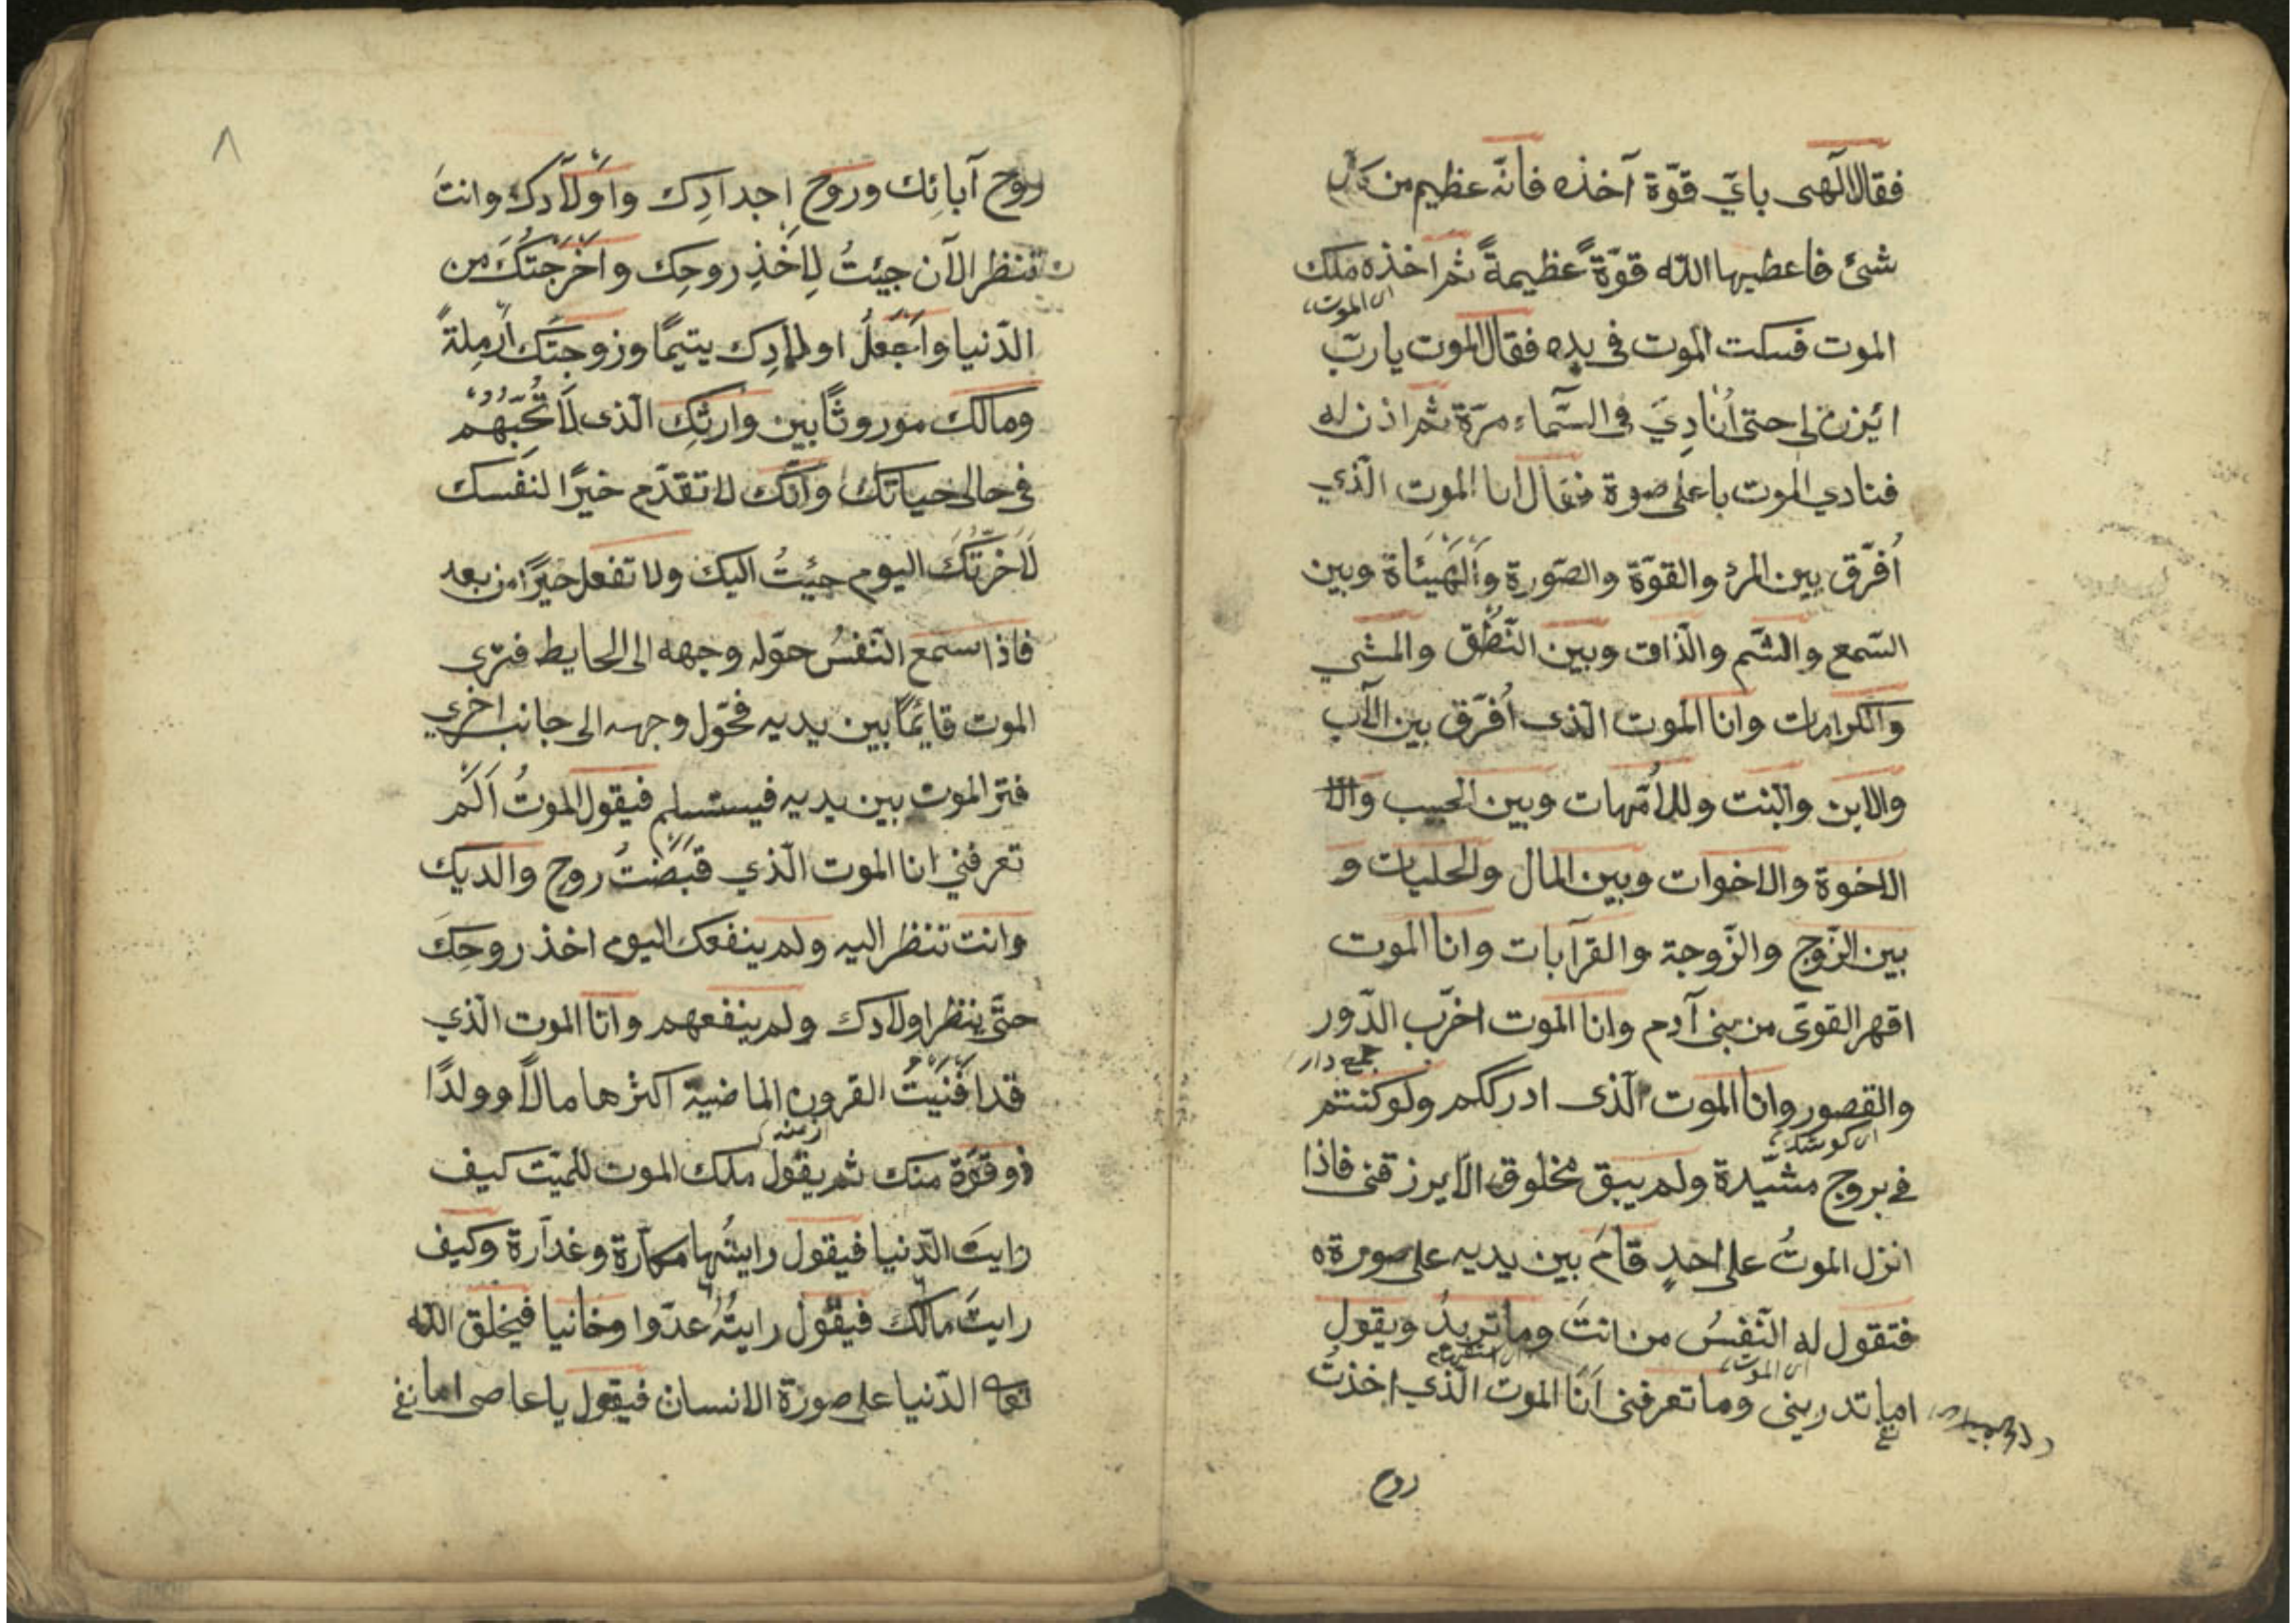 فقال الٓهى باىّ قوّة آخذه فانّه عظيم من كل
شئ فاعطيها اللّه قوّةً عظيمةً ثم اخذه ملك
اى الموت
الموت فسكت الموت فى يده فقال الموت يا ربّ
ائيزن لى حتى اُنادِيَ فى السّماء مرّة ثم اذن له
فنادي الموت باعلى صوة فقال انا الموت الّذي
اُفرّق بين المرد والقوّة والصّورة والَهَيئاة وبين
السّمع والشّم والذّاق وبين النّطُق والمشي
والكرامات وانا الموت الّذى اُفرّق بين الآب
والابن والبنت وللاُمّهات وبين الحبيب والا
الاخوة والاخوات وبين المال والحليات و
بين الزّوج والزّوجة والقرآبات وانا الموت
اقهر القوىّ من بنى آدم وانا الموت اخرّب الدّور
جمع دار
والقصور وانا الموت الّذى ادرككم ولو كنتم
اى كوشك
في بروج مشيّدة ولم يبق مخلوق الّا يرزقنى فاذا
انزل الموتُ على احدٍ قامَ بين يديه على صورةه
فتقول له النّفسُ من انتَ وما تريدُ ويقول
اى الموت
اما تدرينى وما تعرفنى اَنَا الموت الّذي اخذت
روح
٨
روح آبائِك وروح اجدادِك واَوْلَادِك وانتَ
تنظر الآن جيئتُ لِاَخْذِ روحِك واَخْرَجْتُكَ من
الدّنيا واَجْعَلُ اولادِك يتيمًا وزوجَتَك اَرْمِلةً
ومالَك موروثًا بين وارثِك الّذى لَا تُحِبُّهُمْ
فى حالى حياتك وانّك لا تقدّم خيرًا لنفسك
لَاَخَّرتُكَ اليوم جيئتُ اليك ولا تفعل خيرًا من بعد
فاذا سمع النّفسُ حوّله وجهه الى الحايط فيرى
الموت قائمًا بين يديه فحوّل وجهه الى جانب اخري
فتر الموت بين يديه فيستسلم فيقول الموتُ اَلَمْ
تعرفني انا الموت الّذي قَبَضْتُ روح والديك
وانت تنظر اليه ولم ينفعك اليوم اخذ روحِكَ
حتَّى ينظر اولادك ولم ينفعهم وانا الموت الّذي
قد اَفْنَيْتُ القرون الماضية اكثرها مالًا وولدًا
ذو قوّة منك ثم يقول ملك الموت للميّت كيف
رايتَ الدّنيا فيقول رايتُها مكّارة وغدّارة وكيف
رايتَ مالك فيقول رايتُهُ عدّوا وخانيا فيخلق اللّه
الدّنيا على صورة الانسان فيقول يا عاصى اما